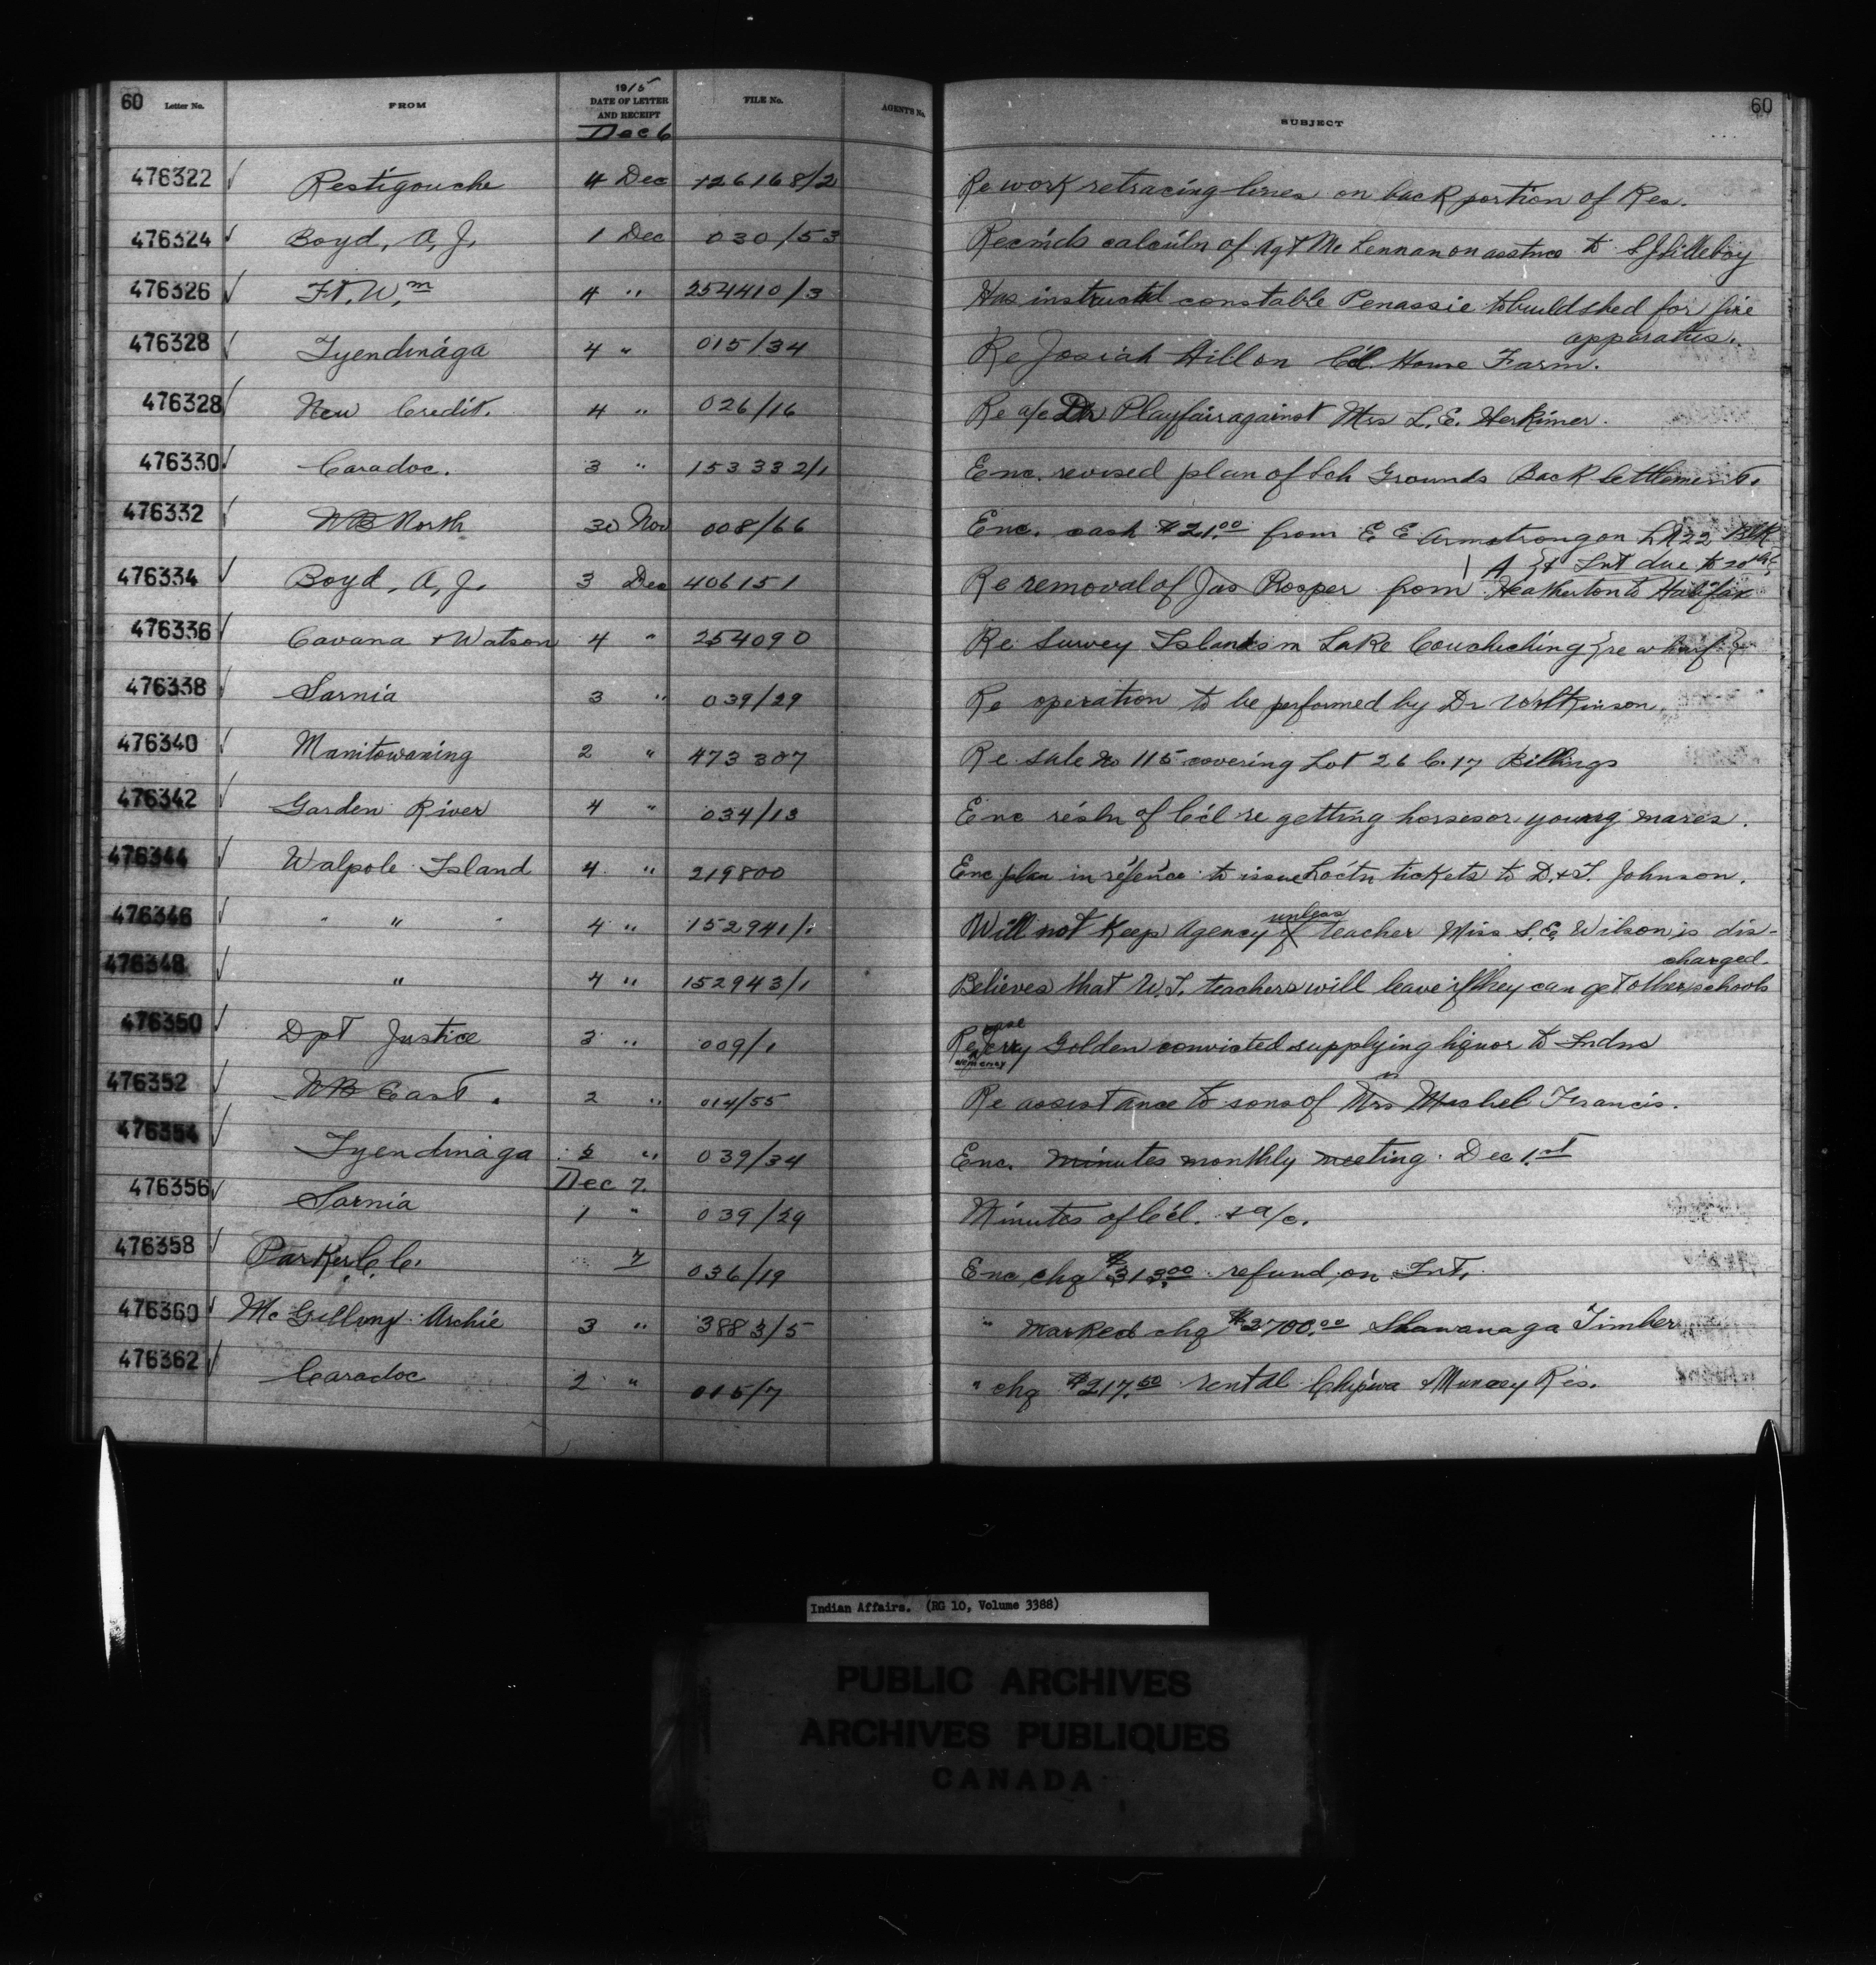 60 Letter No. FROM 1915 DATE OF LETTER AND RECEIPT FILE No. AGENT'S No. SUBJECT 60
Dec 6
476322 Restigouche 4 Dec 126168/2 Re work retracing lines on back portion of Res.
476324 Boyd, A, J. 1 Dec 030/53 Recm'ds calculn of Agt McLennan on asstnce to
476326 Ft. Wm 4 " 254410/3 Has instructed constable Penassie to build shed for fire
apparatus.
476328 Tyendinaga 4 " 015/34 Re Josiah Hill on C'l. Home Farm.
476328 New Credit. 4 " 026/16 Re a/c Dr Playfair against Mrs L. E. Herkimer.
476330 Caradoc. 3 " 153332/1 Enc. revised plan of Sch Grounds Back Settlement.
476332 NB North 30 Nov 008/66 Enc. cash $21.00 from E E Armstrong on LR22 Blk
A } & Int due to 20th
476334 Boyd, A, J. 3 Dec 406151 Re removal of Jas Prosper from Heatherton to Halifax
476336 Cavana & Watson 4 " 254090 Re Survey Islands in Lake Couchiching {re wharf}
476338 Sarnia 3 " 039/29 Re operation to be performed by Dr Wilkinson
476340 Manitowaning 2 " 473307 Re sale no 115 covering Lot 26 C. 17 Billings
476342 Garden River 4 " 034/13 Enc resln of C'cl re getting horses or young mares.
476344 Walpole Island 4 " 219800 Enc plan in ref'ence to issue Loc'tn tickets to D. & T. Johnson.
unless
476346 " " 4 " 152941/1 Will not keep Agency if teacher Miss S. E. Wilson is dis-
charged.
476348 " 4 " 152943/1 Believes that W. I. teachers will leave if they can get other schools
case
476350 Dpt Justice 3 " 009/1 Re Jerry Golden convicted supplying liquor to Indns
clemency
476352 NB East. 2 " 014/55 Re assistance to sons of Mrs Meshel Francis.
476354 Tyendinaga 5 " 039/34 Enc. minutes monthly meeting. Dec 1.st
Dec 7.
476356 Sarnia 1 " 039/29 Minutes of C'cl. & a/c.
476358 Parker C. C. 7 036/19 Enc chq $313.00 refund on Int.
476360 Archie 3 " 3883/5 " marked chq $2700.00 Shawanaga Timber
476362 Caradoc 2 " 015/7 " chq $217.50 rental Chip'wa & Muncey Res.
Indian Affairs. (RG 10, Volume 3388)
PUBLIC ARCHIVES
ARCHIVES PUBLIQUES
CANADA